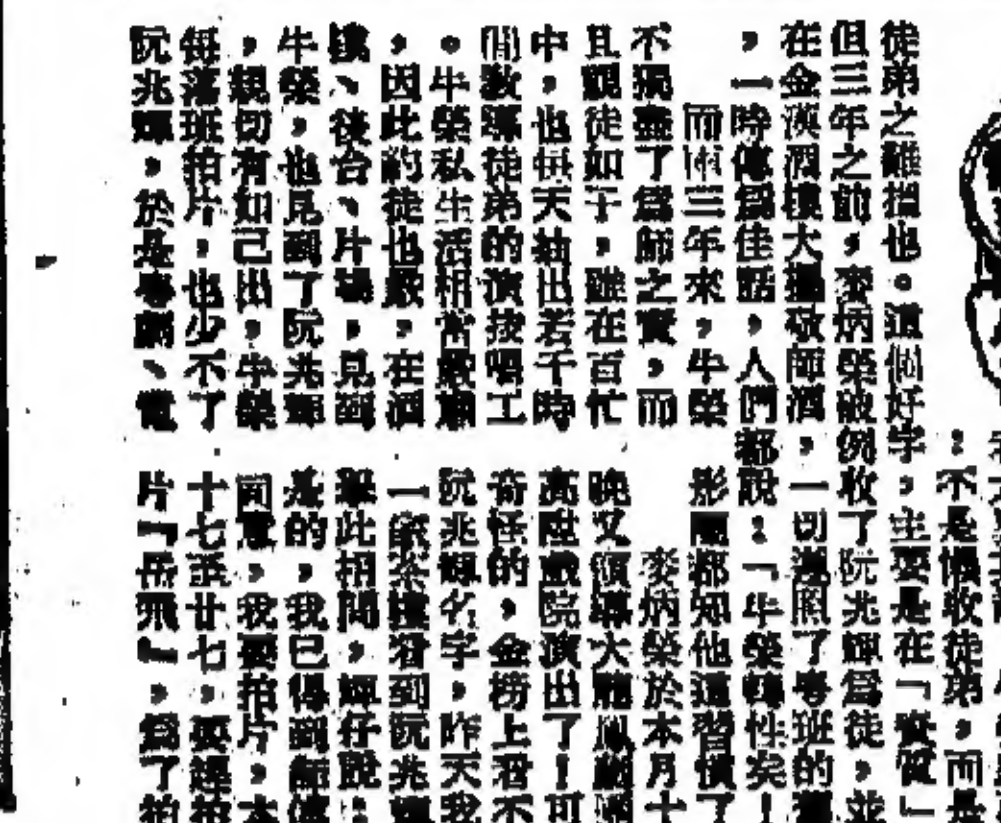 ：不是懶收徒弟，而是
徒弟之難揾也。這個好字，主要是在「實質」
但三年之前，麥炳榮破例收了阮兆輝爲徒，並
在金漢酒樓大擺敬師酒，一切遵照了粵班的
，一時傳爲佳話，人們都說：「牛榮轉性矣！
而兩三年來，牛榮
不獨盡了爲師之實，而
且觀徒如子，雖在百忙
中，也天抽出若干時
間教導徒弟的演技唱工
。牛榮私生活相當嚴肅
，因此約徒也嚴，在酒
樓、後台、片場，見到
牛榮，也見到了阮兆輝
，親切有如己出，牛榮
每落班拍片，也少不了
阮兆輝，於是粵劇、電
影圈都知他這習慣了
麥炳榮於本月十
晚又領導大龍鳳劇團
高陞戲院演出了！可
奇怪的，金榜上君不
阮兆輝名字，昨天我
一家茶樓看到阮兆輝
此相問，輝仔說：
是的，我已得到師傅
同意，我要拍片，本
十七至廿七，要趕拍
片『岳飛』，爲了拍